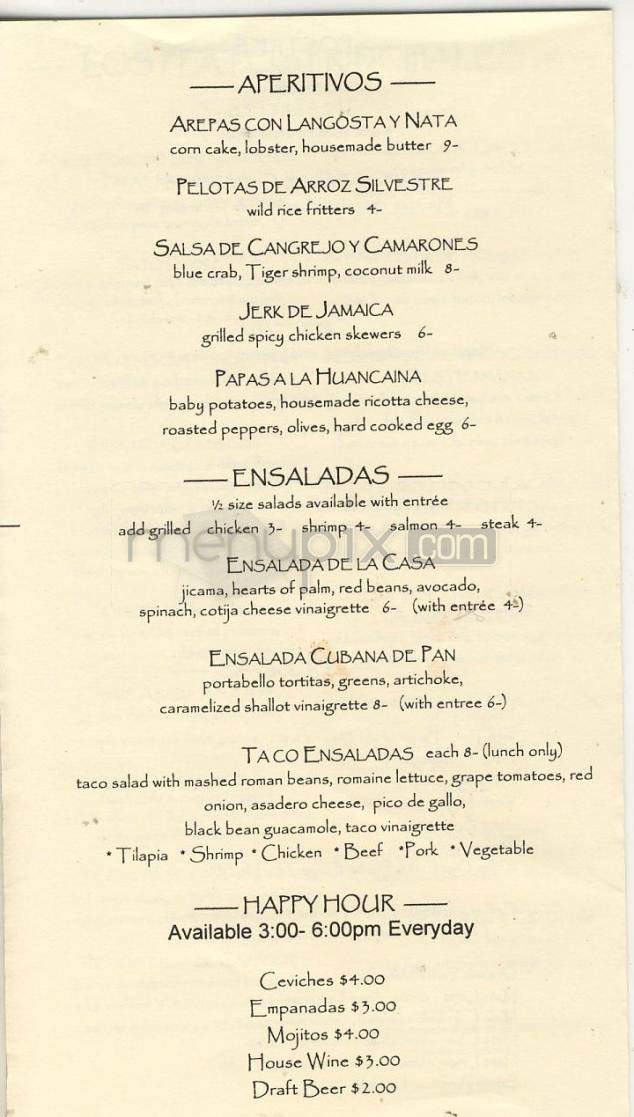 APERITIVOS
AREPAS CON LANGOSTA Y NATA
corn cake, lobster, housemade butter 9-
PELOTAS DE ARROZ SILVESTRE
wild rice fritters 4-
SALSA DE CANGREJO Y CAMARONES
blue crab, Tiger shrimp, coconut milk 8-
JERK DE JAMAICA
grilled spicy chicken skewers 6-
PAPAS A LA HUANCAINA
baby potatoes, housemade ricotta cheese,
roasted peppers, olives, hard cooked egg 6-
ENSALADAS
½ size salads available with entrée
add grilled chicken 3- shrimp 4- salmon 4- steak 4-
menupix.com
ENSALADA DE LA CASA
jicama, hearts of palm, red beans, avocado,
spinach, cotija cheese vinaigrette 6- (with entrée 4-)
ENSALADA CUBANA DE PAN
portabello tortitas, greens, artichoke,
caramelized shallot vinaigrette 8- (with entree 6-)
TACO ENSALADAS each 8- (lunch only)
taco salad with mashed roman beans, romaine lettuce, grape tomatoes, red
onion, asadero cheese, pico de gallo,
black bean guacamole, taco vinaigrette
* Tilapia * Shrimp * Chicken * Beef *Pork * Vegetable
HAPPY HOUR
Available 3:00- 6:00pm Everyday
Ceviches $4.00
Empanadas $3.00
Mojitos $4.00
House Wine $3.00
Draft Beer $2.00